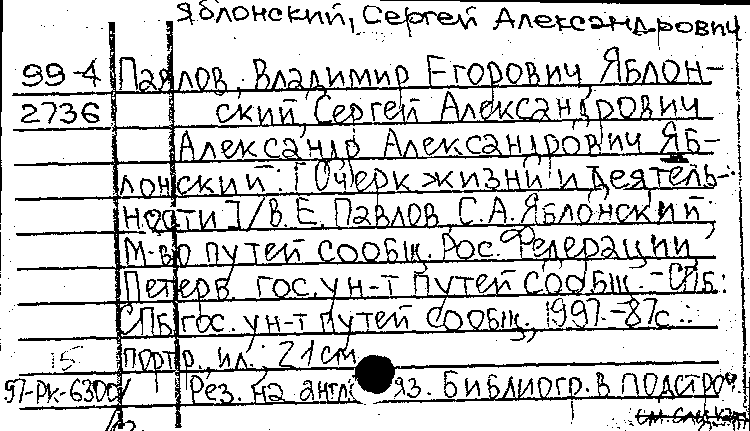 Яблонский, Сергей Александрович
99-4 Павлов, Владимир Егорович, Яблон-
2736 ский, Сергей Александрович
Александр Александрович Яб-
лонский: [Очерк жизни и деятель-
ности] / В. Е. Павлов, С. А. Яблонский;
М-во путей сообщ. Рос. Федерации,
Петерб. гос. ун-т путей сообщ. - СПб:
СПб гос. ун-т путей сообщ., 1997. - 87с.:
15 портр., ил.; 21 см
97-РК-6300 Рез. на англ. яз. Библиогр. в подстроч.
см. след. к.